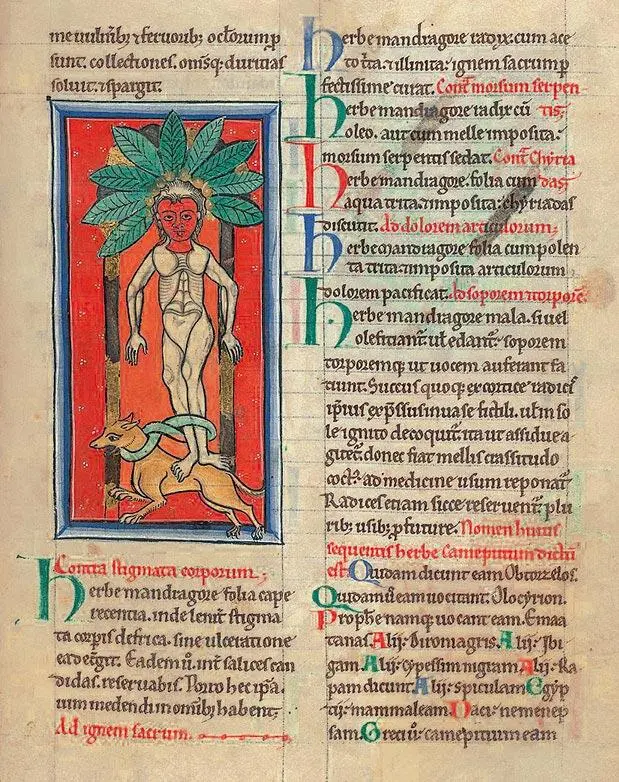 me vulnerib; ⁊ fervorib; oculorum p
sunt. collectiones. omnisq; duritias
soluit. ⁊ spargit.
Contra stigmata corporum;
herbe mandragore folia cape
recentia. inde leniter stigma
ta corporis defrica. sine ulceratione
ea detegit. Eadem
didas. reservabis. Porro hec ipsa.
uim medendi in omnib; habent;
Ad ignem sacrum.
herbe mandragore radix cum ace
to trita. ⁊ illinita: ignem sacrum p
fectissime curat. Contra morsum serpen
herbe mandragore radix cū tis;
oleo. aut cum melle imposita:
morsum serpentis sedat. Contra chyria
herbe mandragore. folia cum das;
aqua trita. ⁊ imposita: chyriadas
discutit. Ad dolorem articulorum;
herbe mandragore folia cum polen
ta trita. ⁊ imposita articulorum
dolorem pacificat. Ad soporem ⁊ torporē.
herbe mandragore mala. si uel
olefitiant̄ uł edant̄: soporem
torporemq; ut uocem auferant fa
tiunt. Succus quoq; ex cortice radicis
ipsius expressus in uase fictili. uł in so
le igni to decoquit̄. ita ut assidue a
gitet̄. donec fiat mellis crassitudo
cocte. ad medicine usum reponat̄
Radices etiam sicce reservent̄. plu
rib; usib; p future. Nomen huius
sequentis herbe camepitum dictū
est. Quidam dicunt eam Obtorzelos.
Quidam ū eam uocitant. Olocyrion.
Prophe namq; uocant eam. Emaa
tanas. Alij. Dromagris. Alij. Ibi
gam. Alij. cypessim nigram. Alij. Ra
pam dicunt. Alij. spiculam. Egyp
tij. mammaleam. Daci. nemenep
sam. Greci ū camepiteum eam